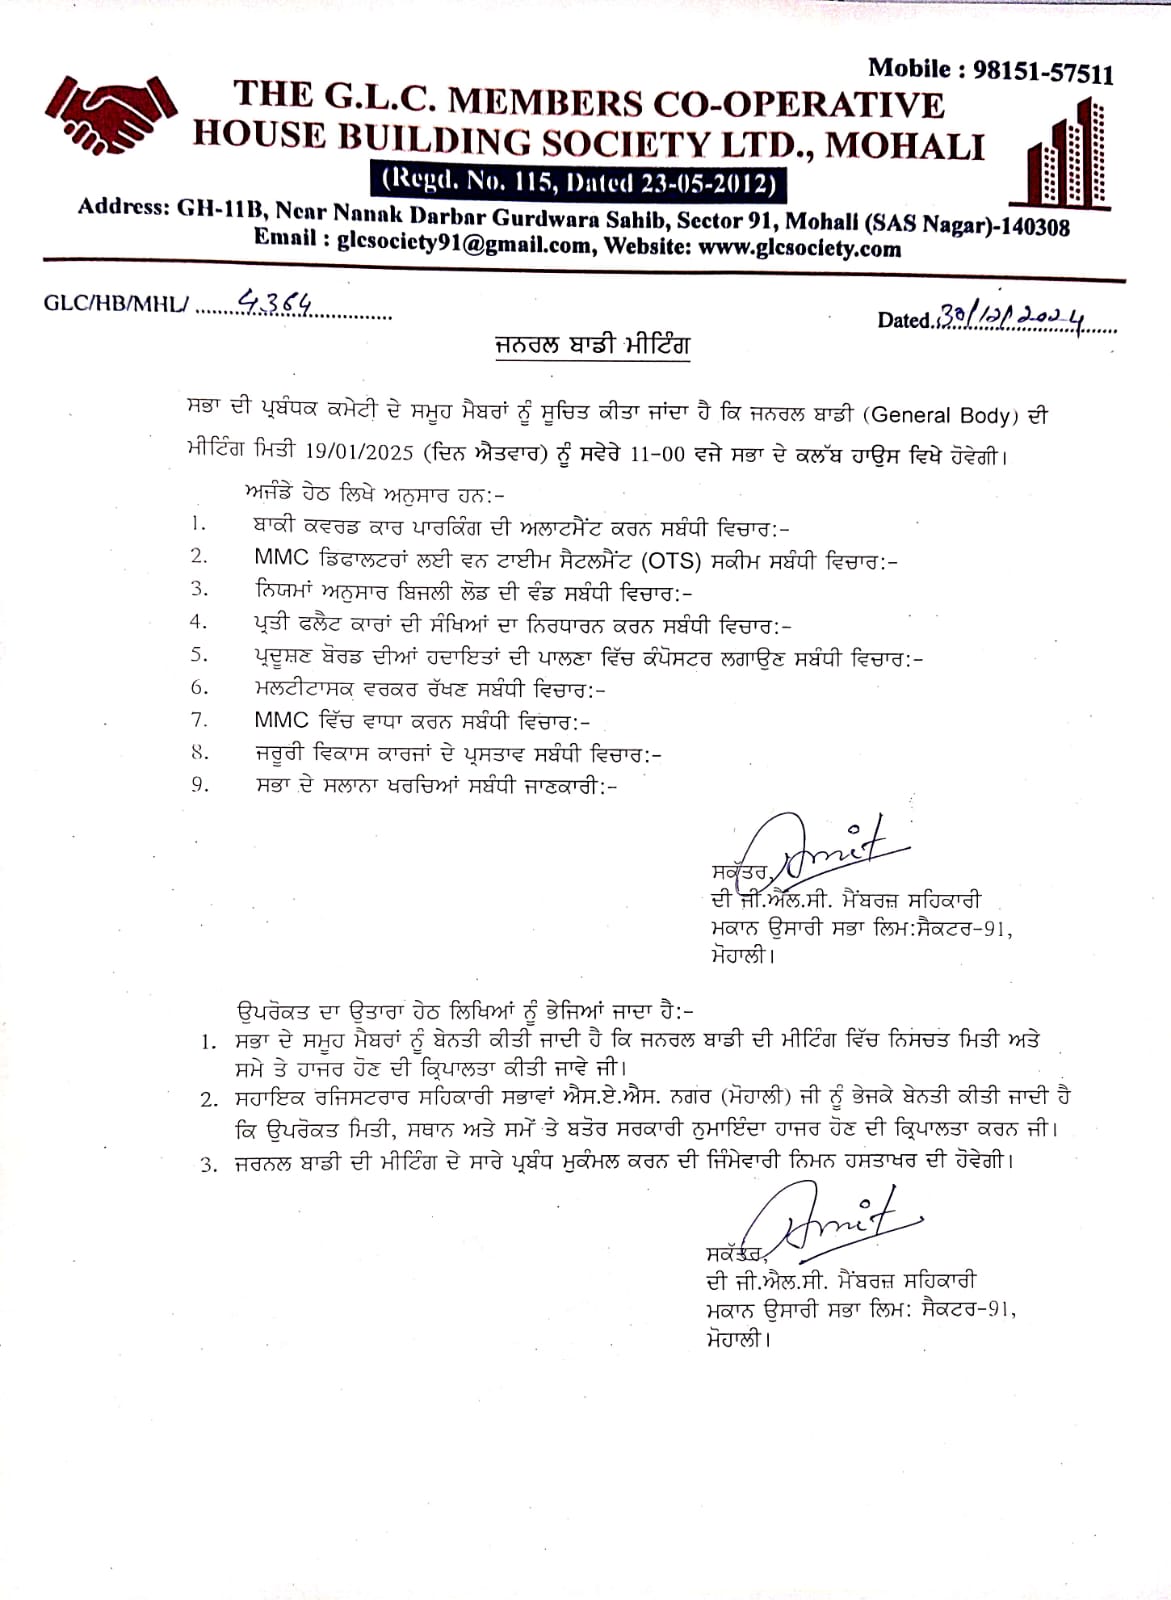 Mobile : 98151-57511
THE G.L.C. MEMBERS CO-OPERATIVE
HOUSE BUILDING SOCIETY LTD., MOHALI
(Regd. No. 115, Dated 23-05-2012)
Address: GH-11B, Near Nanak Darbar Gurdwara Sahib, Sector 91, Mohali (SAS Nagar)-140308
Email : glcsociety91@gmail.com, Website: www.glcsociety.com
GLC/HB/MHL/ ......4364......
Dated.30/12/2024
ਜਨਰਲ ਬਾਡੀ ਮੀਟਿੰਗ
ਸਭਾ ਦੀ ਪ੍ਰਬੰਧਕ ਕਮੇਟੀ ਦੇ ਸਮੂਹ ਮੈਬਰਾਂ ਨੂੰ ਸੂਚਿਤ ਕੀਤਾ ਜਾਂਦਾ ਹੈ ਕਿ ਜਨਰਲ ਬਾਡੀ (General Body) ਦੀ
ਮੀਟਿੰਗ ਮਿਤੀ 19/01/2025 (ਦਿਨ ਐਤਵਾਰ) ਨੂੰ ਸਵੇਰੇ 11-00 ਵਜੇ ਸਭਾ ਦੇ ਕਲੱਬ ਹਾਊਸ ਵਿਖੇ ਹੋਵੇਗੀ।
ਅਜੰਡੇ ਹੇਠ ਲਿਖੇ ਅਨੁਸਾਰ ਹਨ:-
1. ਬਾਕੀ ਕਵਰਡ ਕਾਰ ਪਾਰਕਿੰਗ ਦੀ ਅਲਾਟਮੈਂਟ ਕਰਨ ਸਬੰਧੀ ਵਿਚਾਰ:-
2. MMC ਡਿਫਾਲਟਰਾਂ ਲਈ ਵਨ ਟਾਈਮ ਸੈਟਲਮੈਂਟ (OTS) ਸਕੀਮ ਸਬੰਧੀ ਵਿਚਾਰ:-
3. ਨਿਯਮਾਂ ਅਨੁਸਾਰ ਬਿਜਲੀ ਲੋਡ ਦੀ ਵੰਡ ਸਬੰਧੀ ਵਿਚਾਰ:-
4. ਪ੍ਰਤੀ ਫਲੈਟ ਕਾਰਾਂ ਦੀ ਸੰਖਿਆਂ ਦਾ ਨਿਰਧਾਰਨ ਕਰਨ ਸਬੰਧੀ ਵਿਚਾਰ:-
5. ਪ੍ਰਦੂਸ਼ਣ ਬੋਰਡ ਦੀਆਂ ਹਦਾਇਤਾਂ ਦੀ ਪਾਲਣਾ ਵਿੱਚ ਕੰਪੋਸਟਰ ਲਗਾਉਣ ਸਬੰਧੀ ਵਿਚਾਰ:-
6. ਮਲਟੀਟਾਸਕ ਵਰਕਰ ਰੱਖਣ ਸਬੰਧੀ ਵਿਚਾਰ:-
7. MMC ਵਿੱਚ ਵਾਧਾ ਕਰਨ ਸਬੰਧੀ ਵਿਚਾਰ:-
8. ਜਰੂਰੀ ਵਿਕਾਸ ਕਾਰਜਾਂ ਦੇ ਪ੍ਰਸਤਾਵ ਸਬੰਧੀ ਵਿਚਾਰ:-
9. ਸਭਾ ਦੇ ਸਲਾਨਾ ਖਰਚਿਆਂ ਸਬੰਧੀ ਜਾਣਕਾਰੀ:-
Amit
ਸਕੱਤਰ,
ਦੀ ਜੀ.ਐਲ.ਸੀ. ਮੈਂਬਰਜ਼ ਸਹਿਕਾਰੀ
ਮਕਾਨ ਉਸਾਰੀ ਸਭਾ ਲਿਮ:ਸੈਕਟਰ-91,
ਮੋਹਾਲੀ।
ਉਪਰੋਕਤ ਦਾ ਉਤਾਰਾ ਹੇਠ ਲਿਖਿਆਂ ਨੂੰ ਭੇਜਿਆਂ ਜਾਦਾ ਹੈ:-
1. ਸਭਾ ਦੇ ਸਮੂਹ ਮੈਬਰਾਂ ਨੂੰ ਬੇਨਤੀ ਕੀਤੀ ਜਾਦੀ ਹੈ ਕਿ ਜਨਰਲ ਬਾਡੀ ਦੀ ਮੀਟਿੰਗ ਵਿੱਚ ਨਿਸਚਤ ਮਿਤੀ ਅਤੇ
ਸਮੇ ਤੇ ਹਾਜਰ ਹੋਣ ਦੀ ਕ੍ਰਿਪਾਲਤਾ ਕੀਤੀ ਜਾਵੇ ਜੀ।
2. ਸਹਾਇਕ ਰਜਿਸਟਰਾਰ ਸਹਿਕਾਰੀ ਸਭਾਵਾਂ ਐਸ.ਏ.ਐਸ. ਨਗਰ (ਮੋਹਾਲੀ) ਜੀ ਨੂੰ ਭੇਜਕੇ ਬੇਨਤੀ ਕੀਤੀ ਜਾਦੀ ਹੈ
ਕਿ ਉਪਰੋਕਤ ਮਿਤੀ, ਸਥਾਨ ਅਤੇ ਸਮੇਂ ਤੇ ਬਤੋਰ ਸਰਕਾਰੀ ਨੁਮਾਇੰਦਾ ਹਾਜਰ ਹੋਣ ਦੀ ਕ੍ਰਿਪਾਲਤਾ ਕਰਨ ਜੀ।
3. ਜਰਨਲ ਬਾਡੀ ਦੀ ਮੀਟਿੰਗ ਦੇ ਸਾਰੇ ਪ੍ਰਬੰਧ ਮੁਕੰਮਲ ਕਰਨ ਦੀ ਜਿੰਮੇਵਾਰੀ ਨਿਮਨ ਹਸਤਾਖਰ ਦੀ ਹੋਵੇਗੀ।
Amit
ਸਕੱਤਰ,
ਦੀ ਜੀ.ਐਲ.ਸੀ. ਮੈਂਬਰਜ਼ ਸਹਿਕਾਰੀ
ਮਕਾਨ ਉਸਾਰੀ ਸਭਾ ਲਿਮ: ਸੈਕਟਰ-91,
ਮੋਹਾਲੀ।